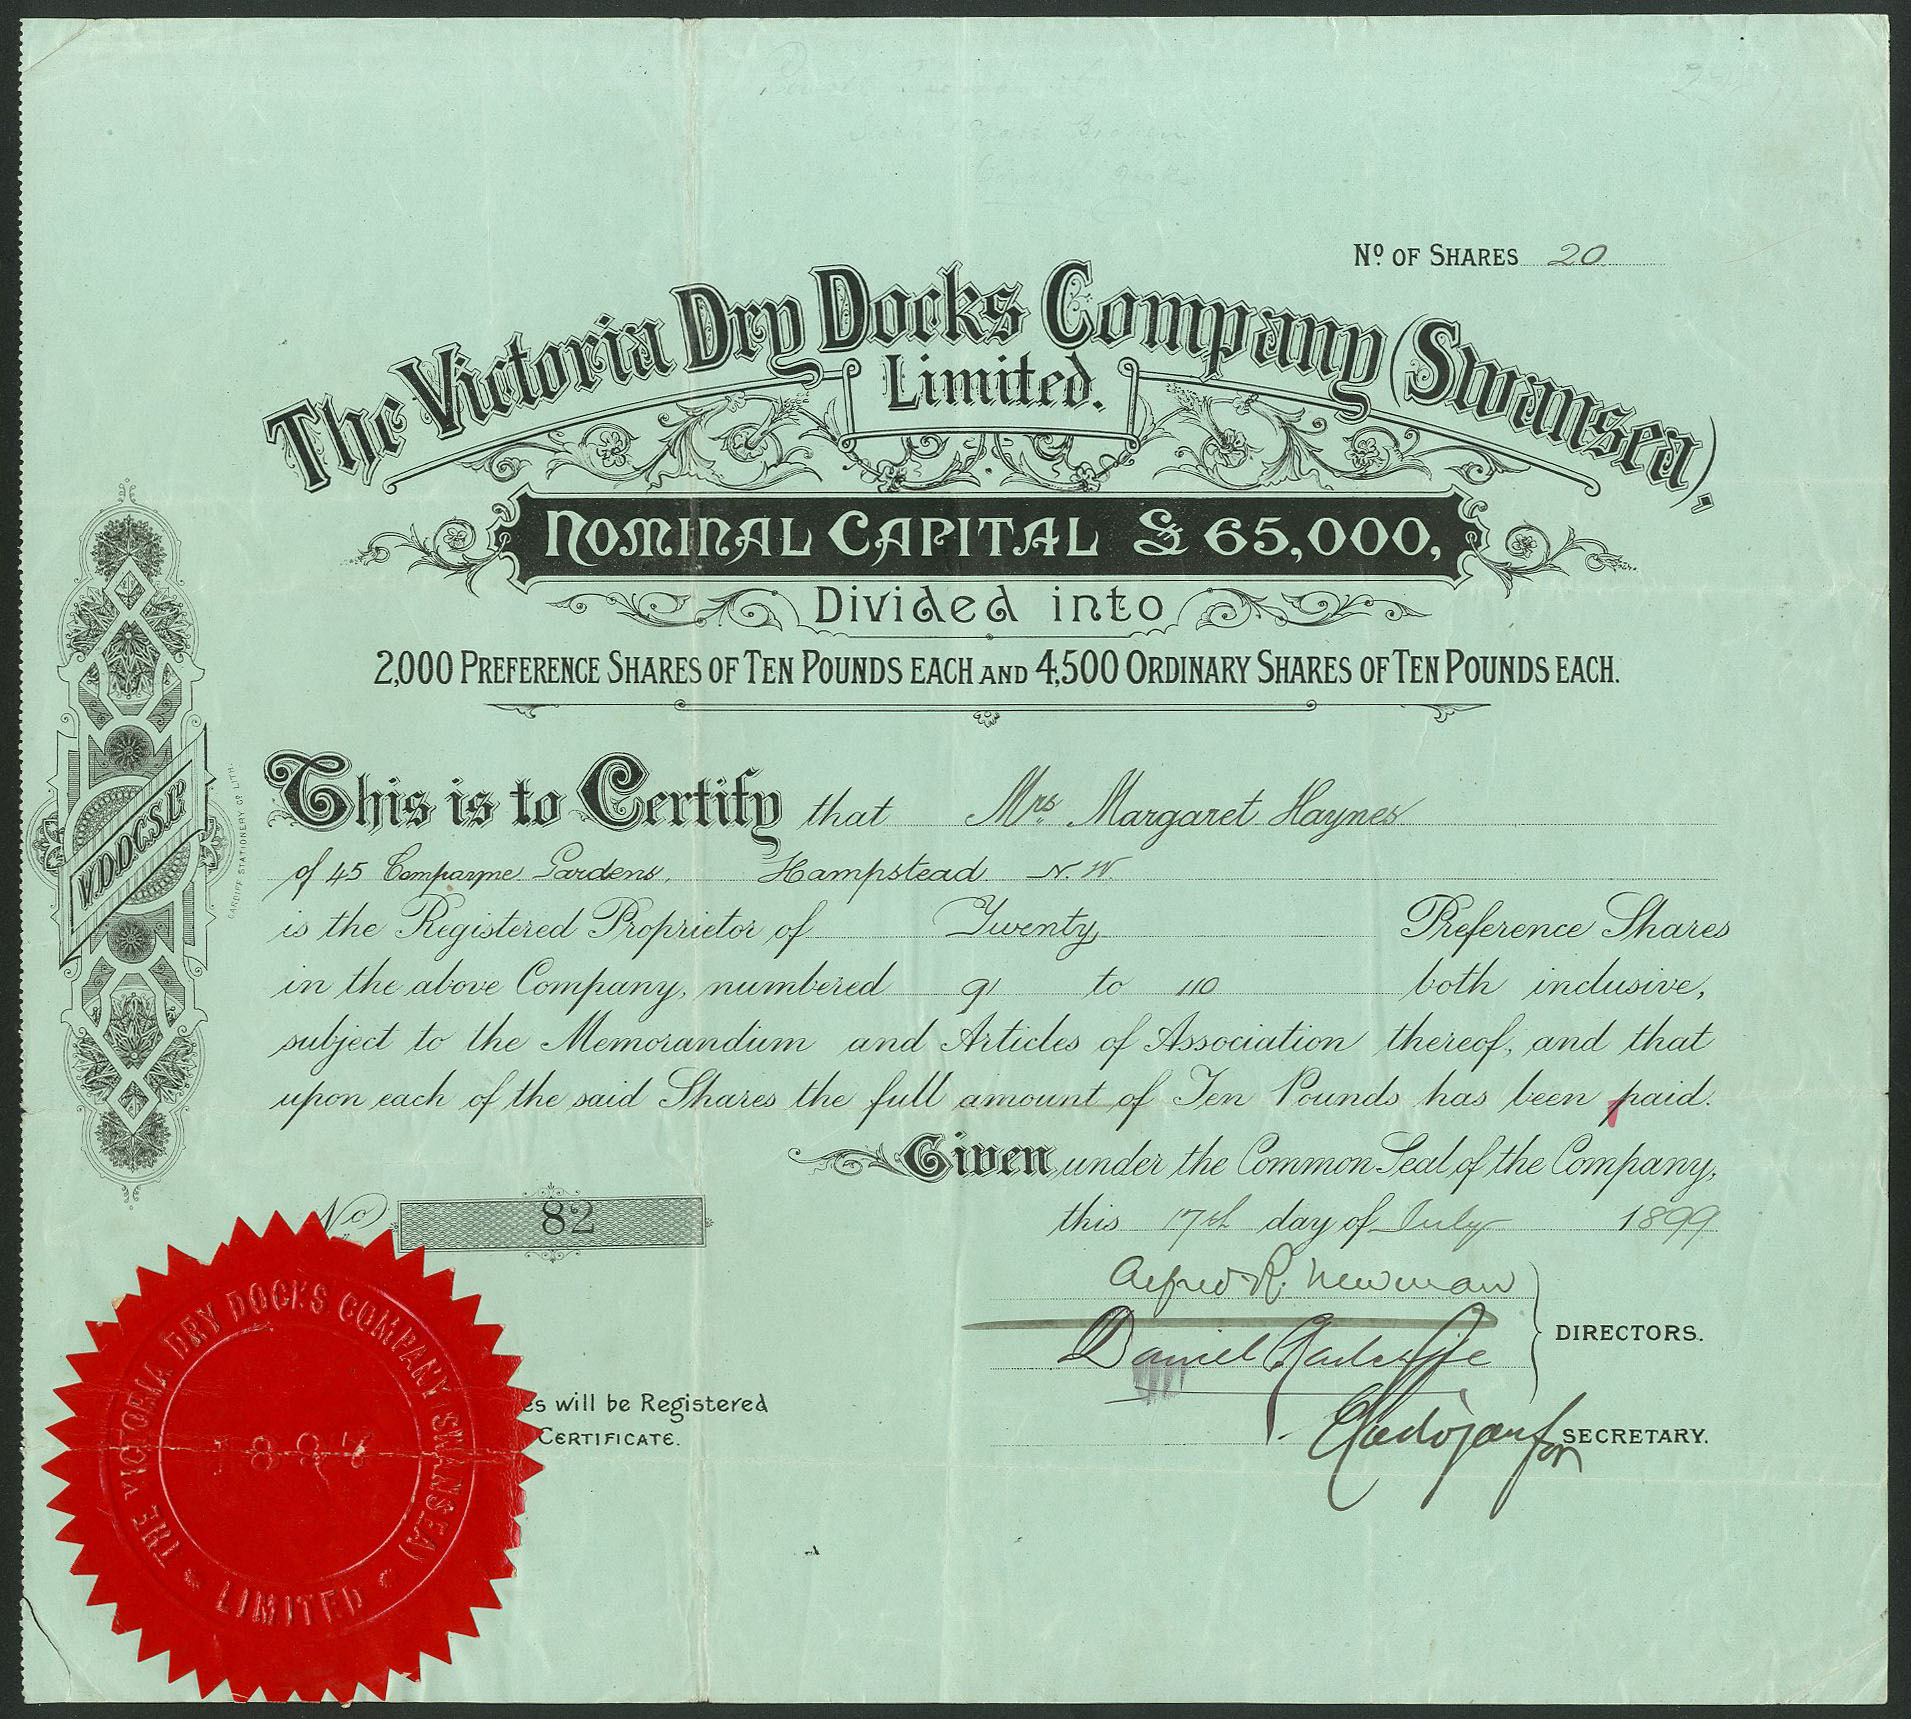 Nº OF SHARES 20
The Victoria Dry Docks Company (Swansea),
Limited.
NOMINAL CAPITAL £65,000,
Divided into
2,000 PREFERENCE SHARES OF TEN POUNDS EACH AND 4,500 ORDINARY SHARES OF TEN POUNDS EACH.
This is to Certify that Mrs Margaret Haynes
of 45 Compayne Gardens, Hampstead N.W.
is the Registered Proprietor of Twenty Preference Shares
in the above Company, numbered 91 to 110 both inclusive,
subject to the Memorandum and Articles of Association thereof, and that
upon each of the said Shares the full amount of Ten Pounds has been paid.
Given under the Common Seal of the Company,
this 17th day of July 1899
No 82
Alfred R. Newman
Daniel Radcliffe
DIRECTORS.
SECRETARY.
es will be Registered
CERTIFICATE.
V.D.D.C.S.Ld
CARDIFF STATIONERY Co LITH.
THE VICTORIA DRY DOCKS COMPANY (SWANSEA)
LIMITED